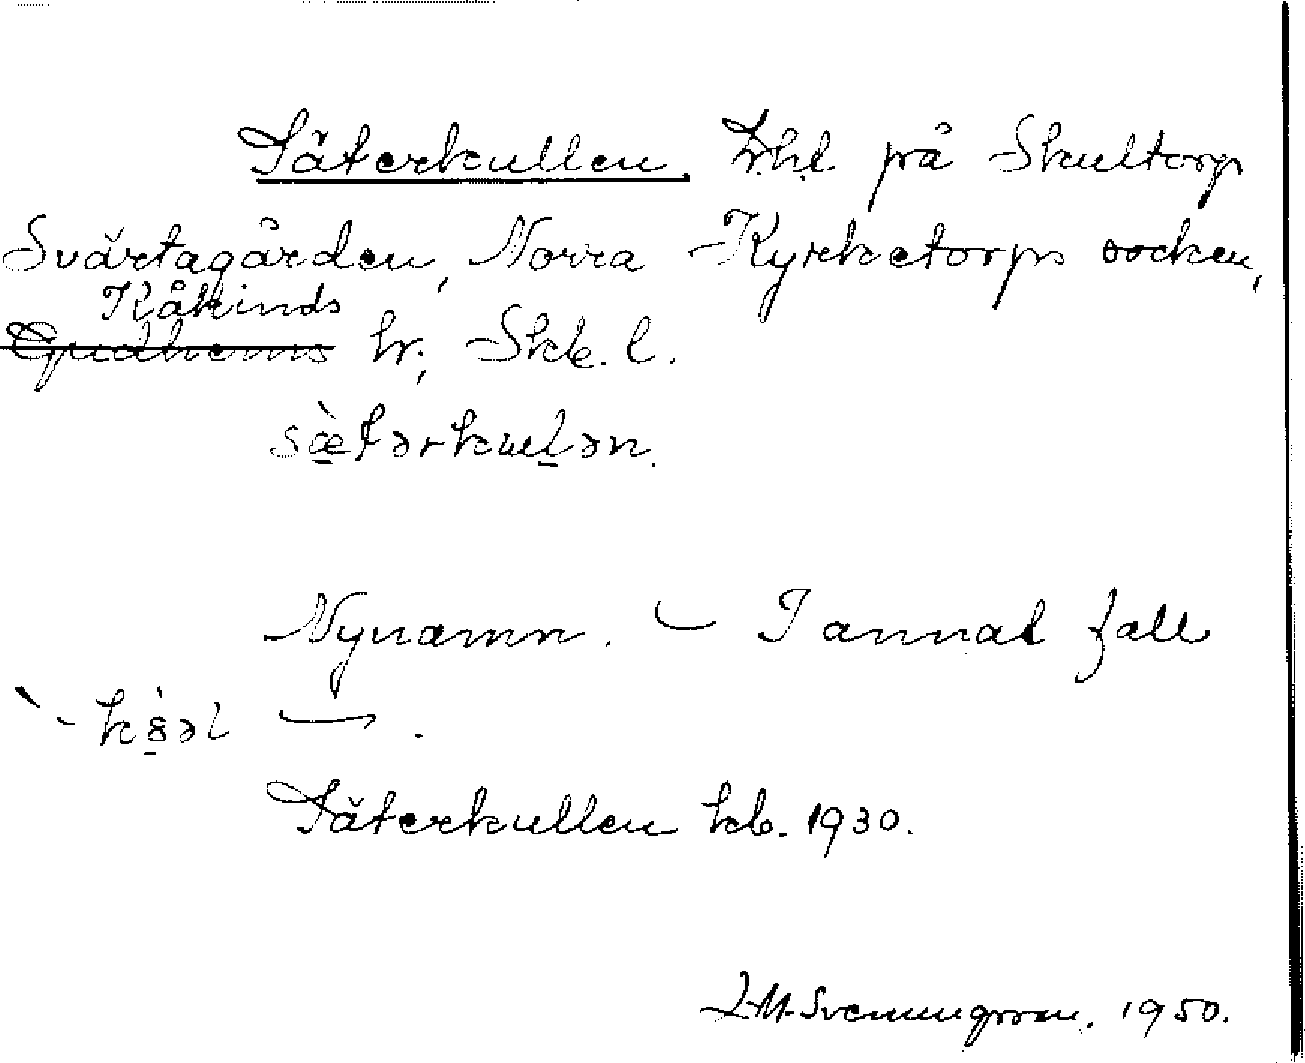 Säterkullen, lht på Skultorp
Svärtagården, Norra Kyrketorps socken,
Kåkinds
Gudhems hr, Skb. l.
sæ̀tərkuḷən.
Nynamn. – I annat fall
`- kɞ̀əl —.
Säterkullen kb. 1930.
Svenungsson. 1950.